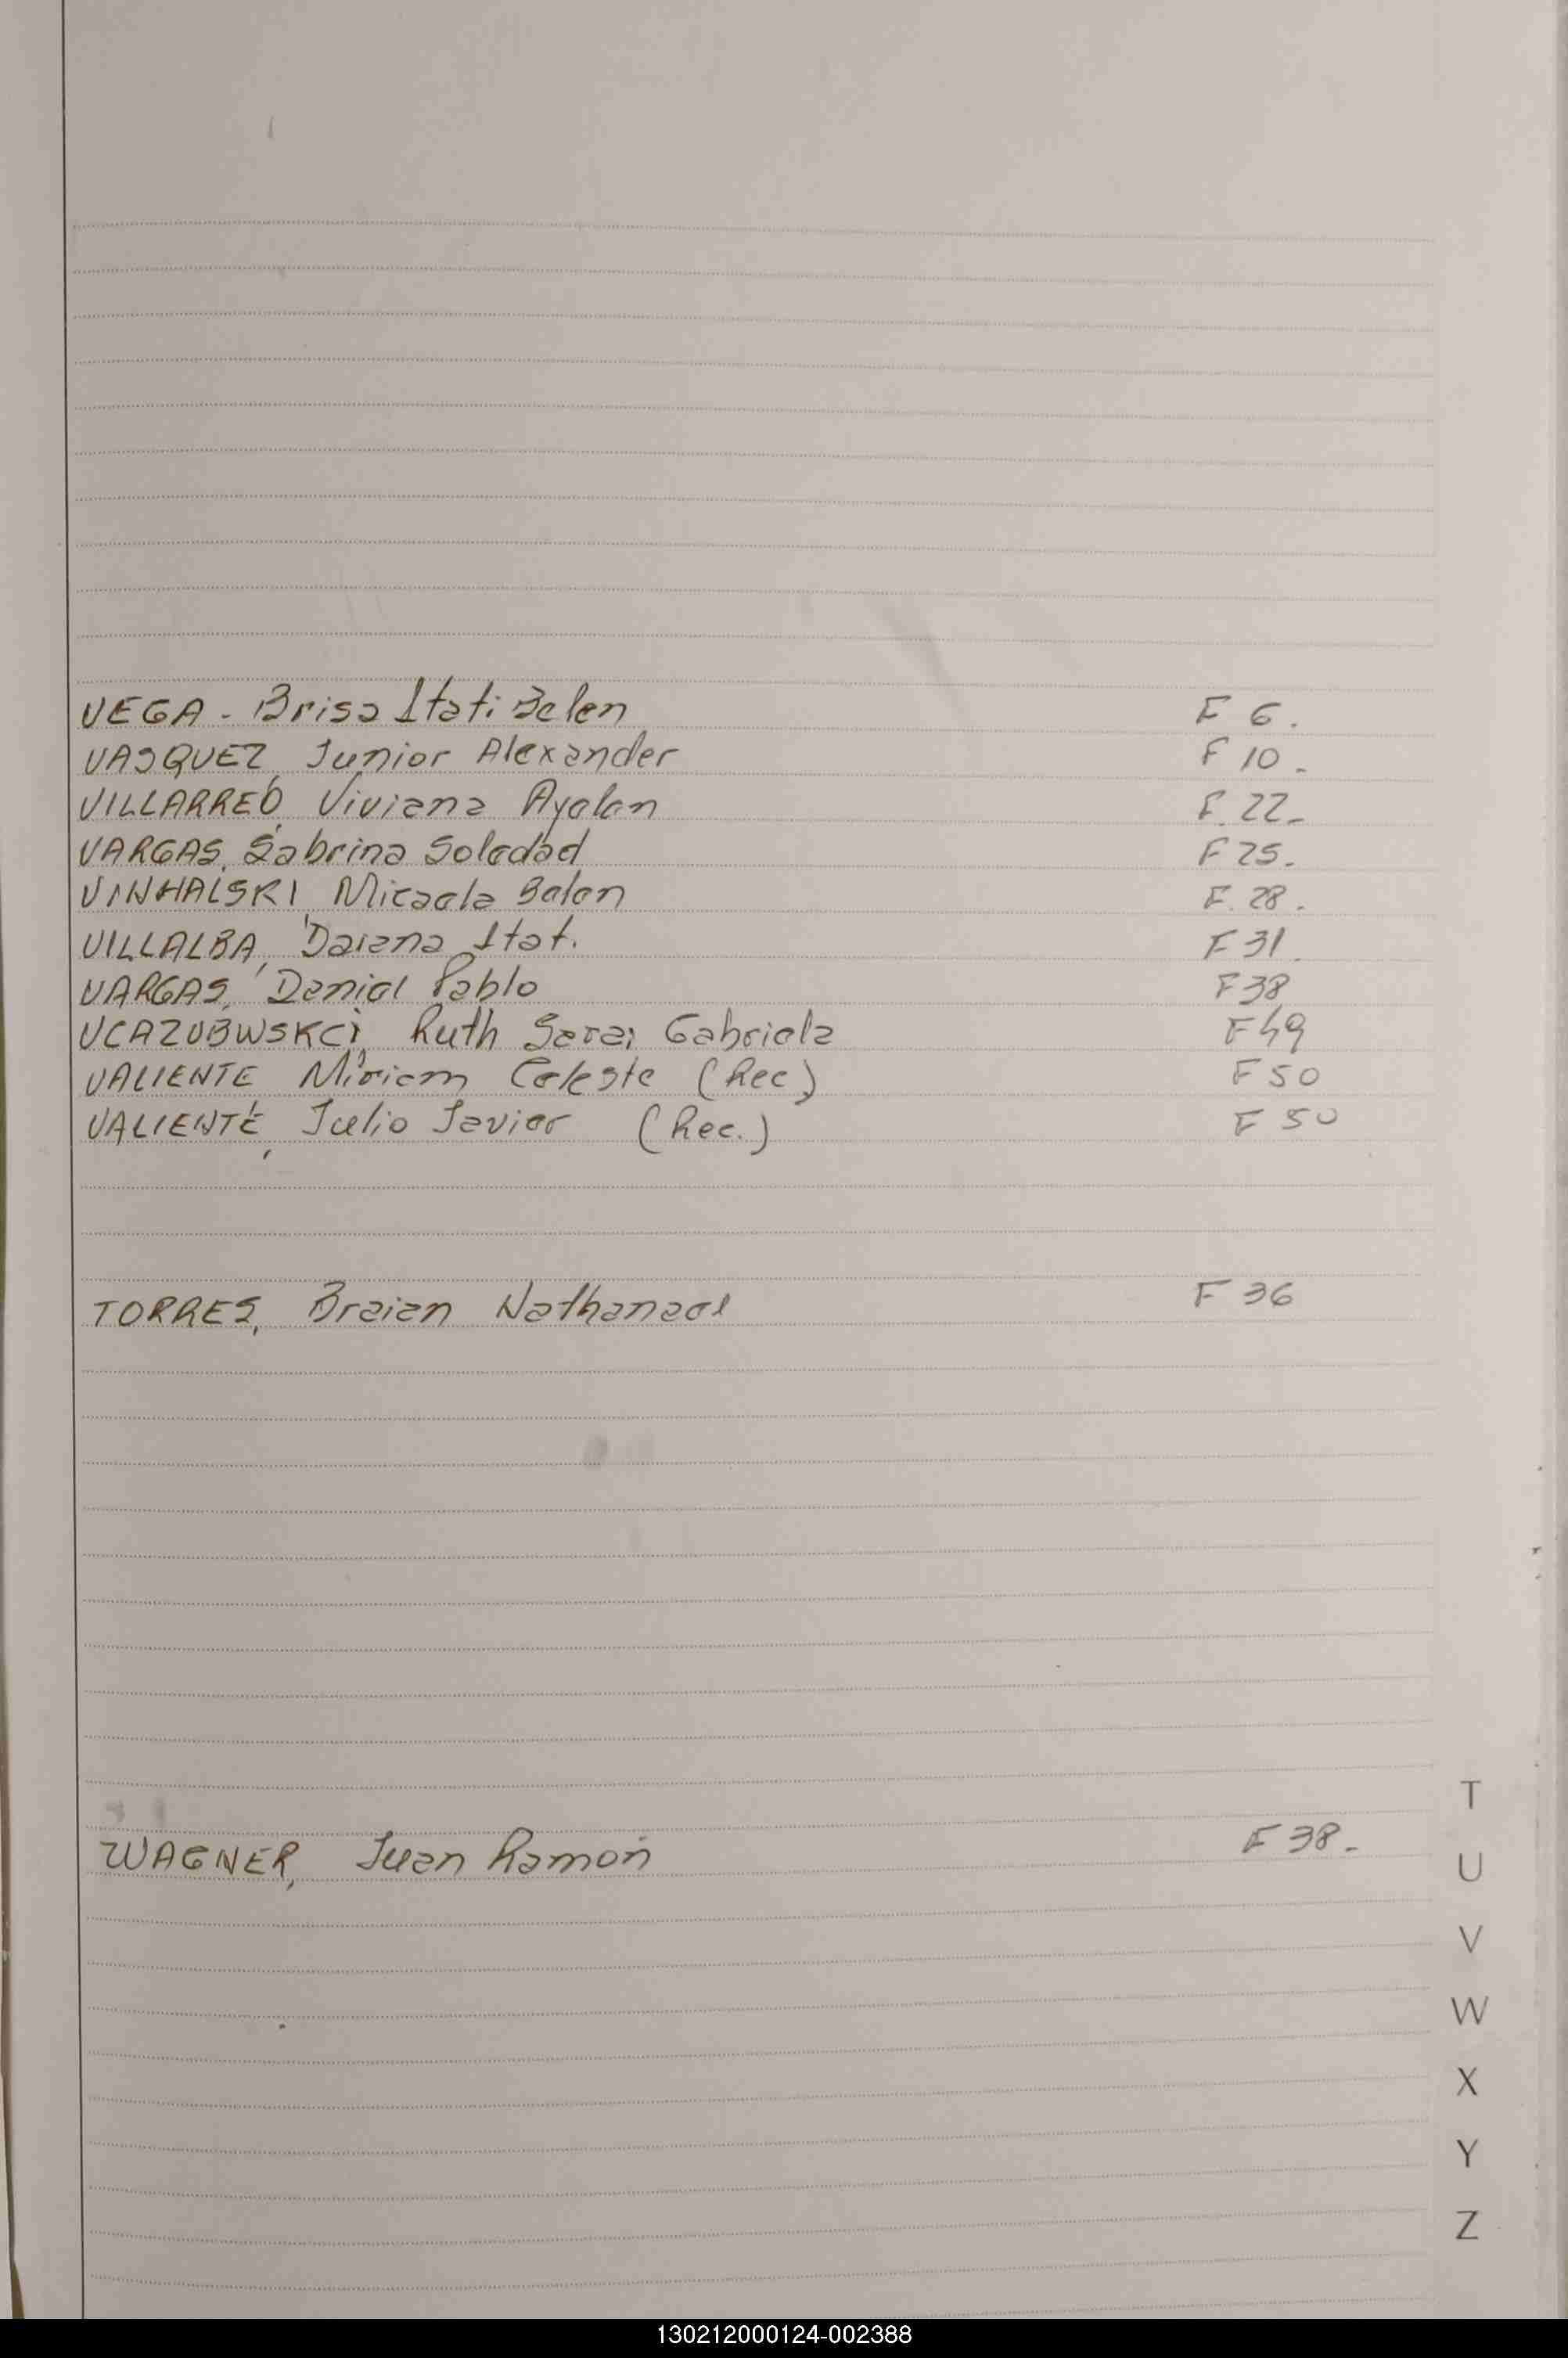 VEGA - Brisa Itati Belen F 6.
VASQUEZ, Junior Alexander F 10.
VILLARREO, Viviana Ayelen F. 22.
VARGAS, Sabrina Soledad F 25.
VINHALSKI Micaela Belen F. 28.
VILLALBA, Daiana Itat. F 31.
VARGAS, Daniel Pablo F 38
UCAZUBWSKCI, Ruth Sarai Gabriela F 49
VALIENTE Miriam Celeste (Rec) F 50
VALIENTE, Julio Javier (Rec.) F 50
TORRES, Braian Nathanael F 36
WAGNER, Juan Ramon F 38.
T
U
V
W
X
Y
Z
130212000124-002388